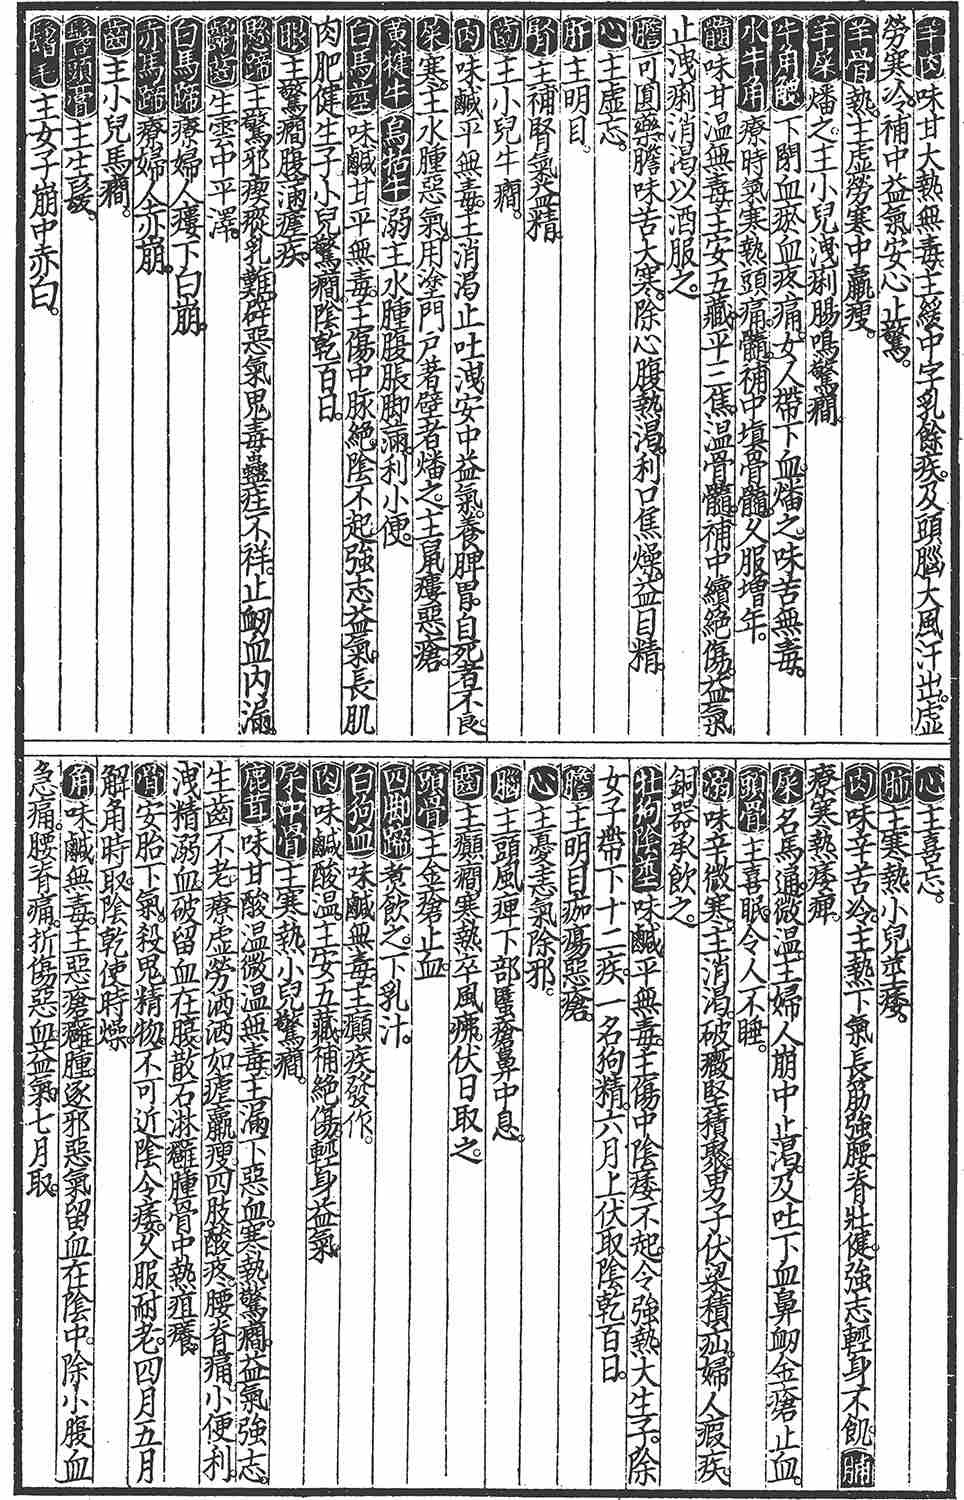 羊肉味甘大熱無毒主緩中字乳餘疾及頭腦大風汗出虛
勞寒冷補中益氣安心止驚。
羊骨熱主虛勞寒中羸瘦。
羊屎燔之主小兒洩痢腸鳴驚癇。
牛角䚡下閉血瘀血疼痛女人帶下血燔之味苦無毒。
水牛角療時氣寒熱頭痛髓補中填骨髓久服增年。
髓味甘溫無毒主安五藏平三焦溫骨髓補中續絕傷益氣
止洩痢消渴以酒服之。
膽可圓藥膽味苦大寒除心腹熱渴利口焦燥益目精
心主虛忘。
肝主明目。
腎主補腎氣益精。
齒主小兒牛癇。
肉味鹹平無毒主消渴止吐洩安中益氣養脾胃自死者不良。
屎寒主水腫惡氣用塗門戶著壁者燔之主鼠瘻惡瘡。
黃犍牛烏牯牛溺主水腫腹脹脚滿利小便。
白馬莖味鹹甘平無毒主傷中脉絕陰不起強志益氣長肌
肉肥健生子小兒驚癇陰乾百日。
眼主驚癇腹滿瘧疾。
懸蹄主驚邪瘈瘲乳難辟惡氣鬼毒蠱疰不祥止衂血內漏
蹄齒生雲中平澤。
白馬蹄療婦人瘻下白崩。
赤馬蹄療婦人赤崩。
齒主小兒馬癇。
鬐頭膏主生髮、
鬐毛主女子崩中赤白。
心主喜忘。
肺主寒熱小兒莖痿。
肉味辛苦冷主熱下氣長筋強腰脊壯健強志輕身不飢脯
療寒熱痿痺。
屎名馬通微溫主婦人崩中止渴及吐下血鼻衂金瘡止血
頭骨主喜眠令人不睡。
溺味辛微寒主消渴破癥堅積聚男子伏梁積疝婦人瘕疾
銅器承飲之。
牡狗陰莖味鹹平無毒主傷中陰痿不起令強熱大生子除
女子帶下十二疾一名狗精六月上伏取陰乾百日。
膽主明目痂瘍惡瘡。
心主憂恚氣除邪。
腦主頭風痺下部䘌瘡鼻中息。
齒主癲癇寒熱卒風痱伏日取之。
頭骨主金瘡止血
四脚蹄煮飲之下乳汁。
白狗血味鹹無毒主癲疾發作。
肉味鹹酸溫主安五藏補絕傷輕身益氣
屎中骨主寒熱小兒驚癇。
鹿茸味甘酸溫微溫無毒主漏下惡血寒熱驚癇益氣強志
生齒不老療虛勞洒洒如瘧羸瘦四肢酸疼腰脊痛小便利
洩精溺血破留血在腹散石淋癰腫骨中熱疽癢。
骨安胎下氣殺鬼精物不可近陰令痿久服耐老四月五月
解角時取陰乾使時燥
角味鹹無毒主惡瘡癰腫逐邪惡氣留血在陰中除小腹血
急痛腰脊痛折傷惡血益氣七月取